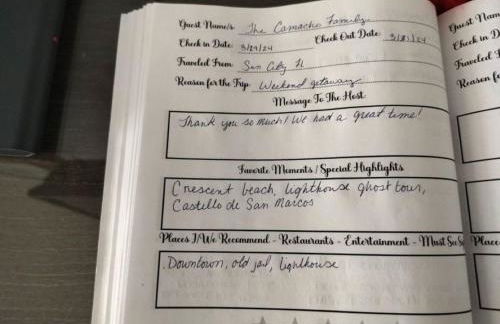 Guest Name/s: The Camacho Family
Check in Date: 3/29/24 Check Out Date: 3/31/24
Traveled From: Sun City Fl
Reason for the Trip: Weekend getaway
Message To The Host
Thank you so much! We had a great time!
Favorite Moments / Special Highlights
Crescent beach, lighthouse ghost tour,
Castillo de San Marcos
Places I/We Recommend - Restaurants - Entertainment - Must See
Downtown, old jail, lighthouse
Guest Nam
Check in D
Traveled F
Reason fo
Place